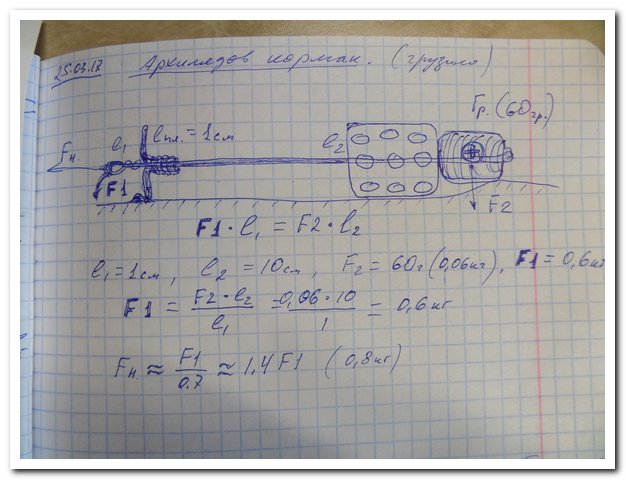 25.03.17 Архимедов кормак. (грузило)
Гр. (60гр.)
lпл. = 1см
Fн l1 l2
F1
F2
F1 · l1 = F2 · l2
l1 = 1см, l2 = 10см, F2 = 60г (0,06кг), F1 = 0,6кг
F1 = F2 · l2 / l1 = 0,06 · 10 / 1 = 0,6кг
Fн ≈ F1 / 0.7 ≈ 1,4 F1 (0,8кг)